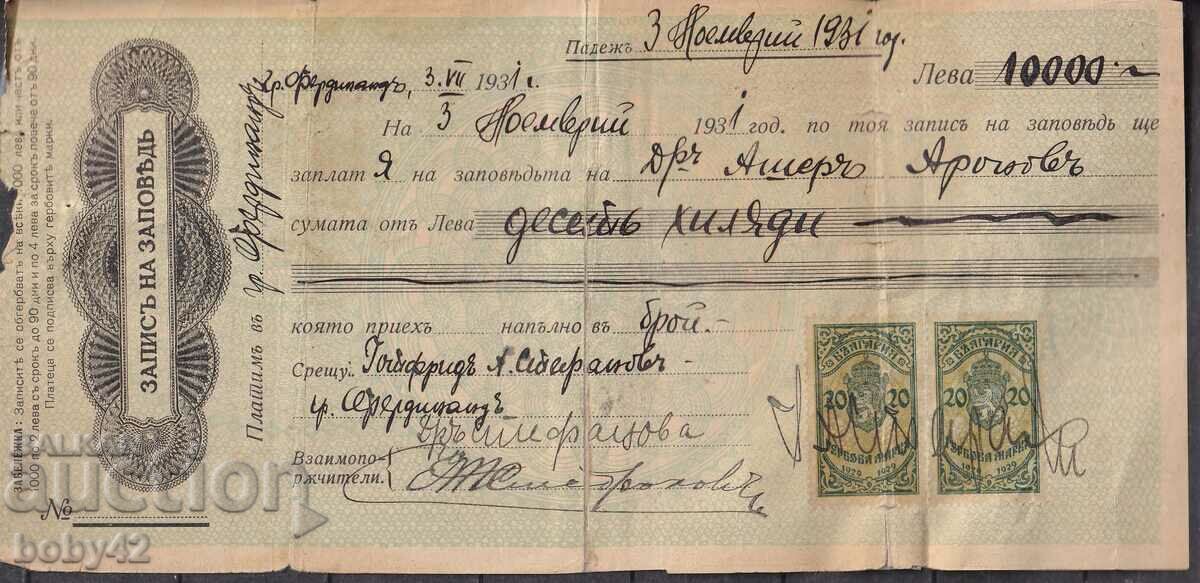 Падежъ 3 Ноемврий 1931 год.
гр. Фердинандъ, 3. VII 1931 г.
Лева 10000
На 3 Ноемврий 1931 год. по тоя записъ на заповѣдь ще
заплатя на заповѣдьта на Дръ Ашеръ Ароновъ
сумата отъ Лева десеть хиляди
която приехъ напълно въ брой.
Срещу Готфридъ А. Стефановъ
гр. Фердинандъ
Дръ Стефанова
Взаимопо-
ржчители.
ЗАПИСЪ НА ЗАПОВѢДЬ
Платимъ въ гр. Фердинандъ
ЗАБЕЛЕЖКА: Записитѣ се обгербватъ на всѣки 1000 лева или часть отъ
1000 по 2 лева съ срокъ до 90 дни и по 4 лева за срокъ повече отъ 90 дни.
Платеца се подписва върху гербовитѣ марки.
№
БЪЛГАРИЯ
20 20
ГЕРБОВА МАРКА
1929 1929
БЪЛГАРИЯ
20 20
ГЕРБОВА МАРКА
1929 1929
BALKAN
auction
boby42